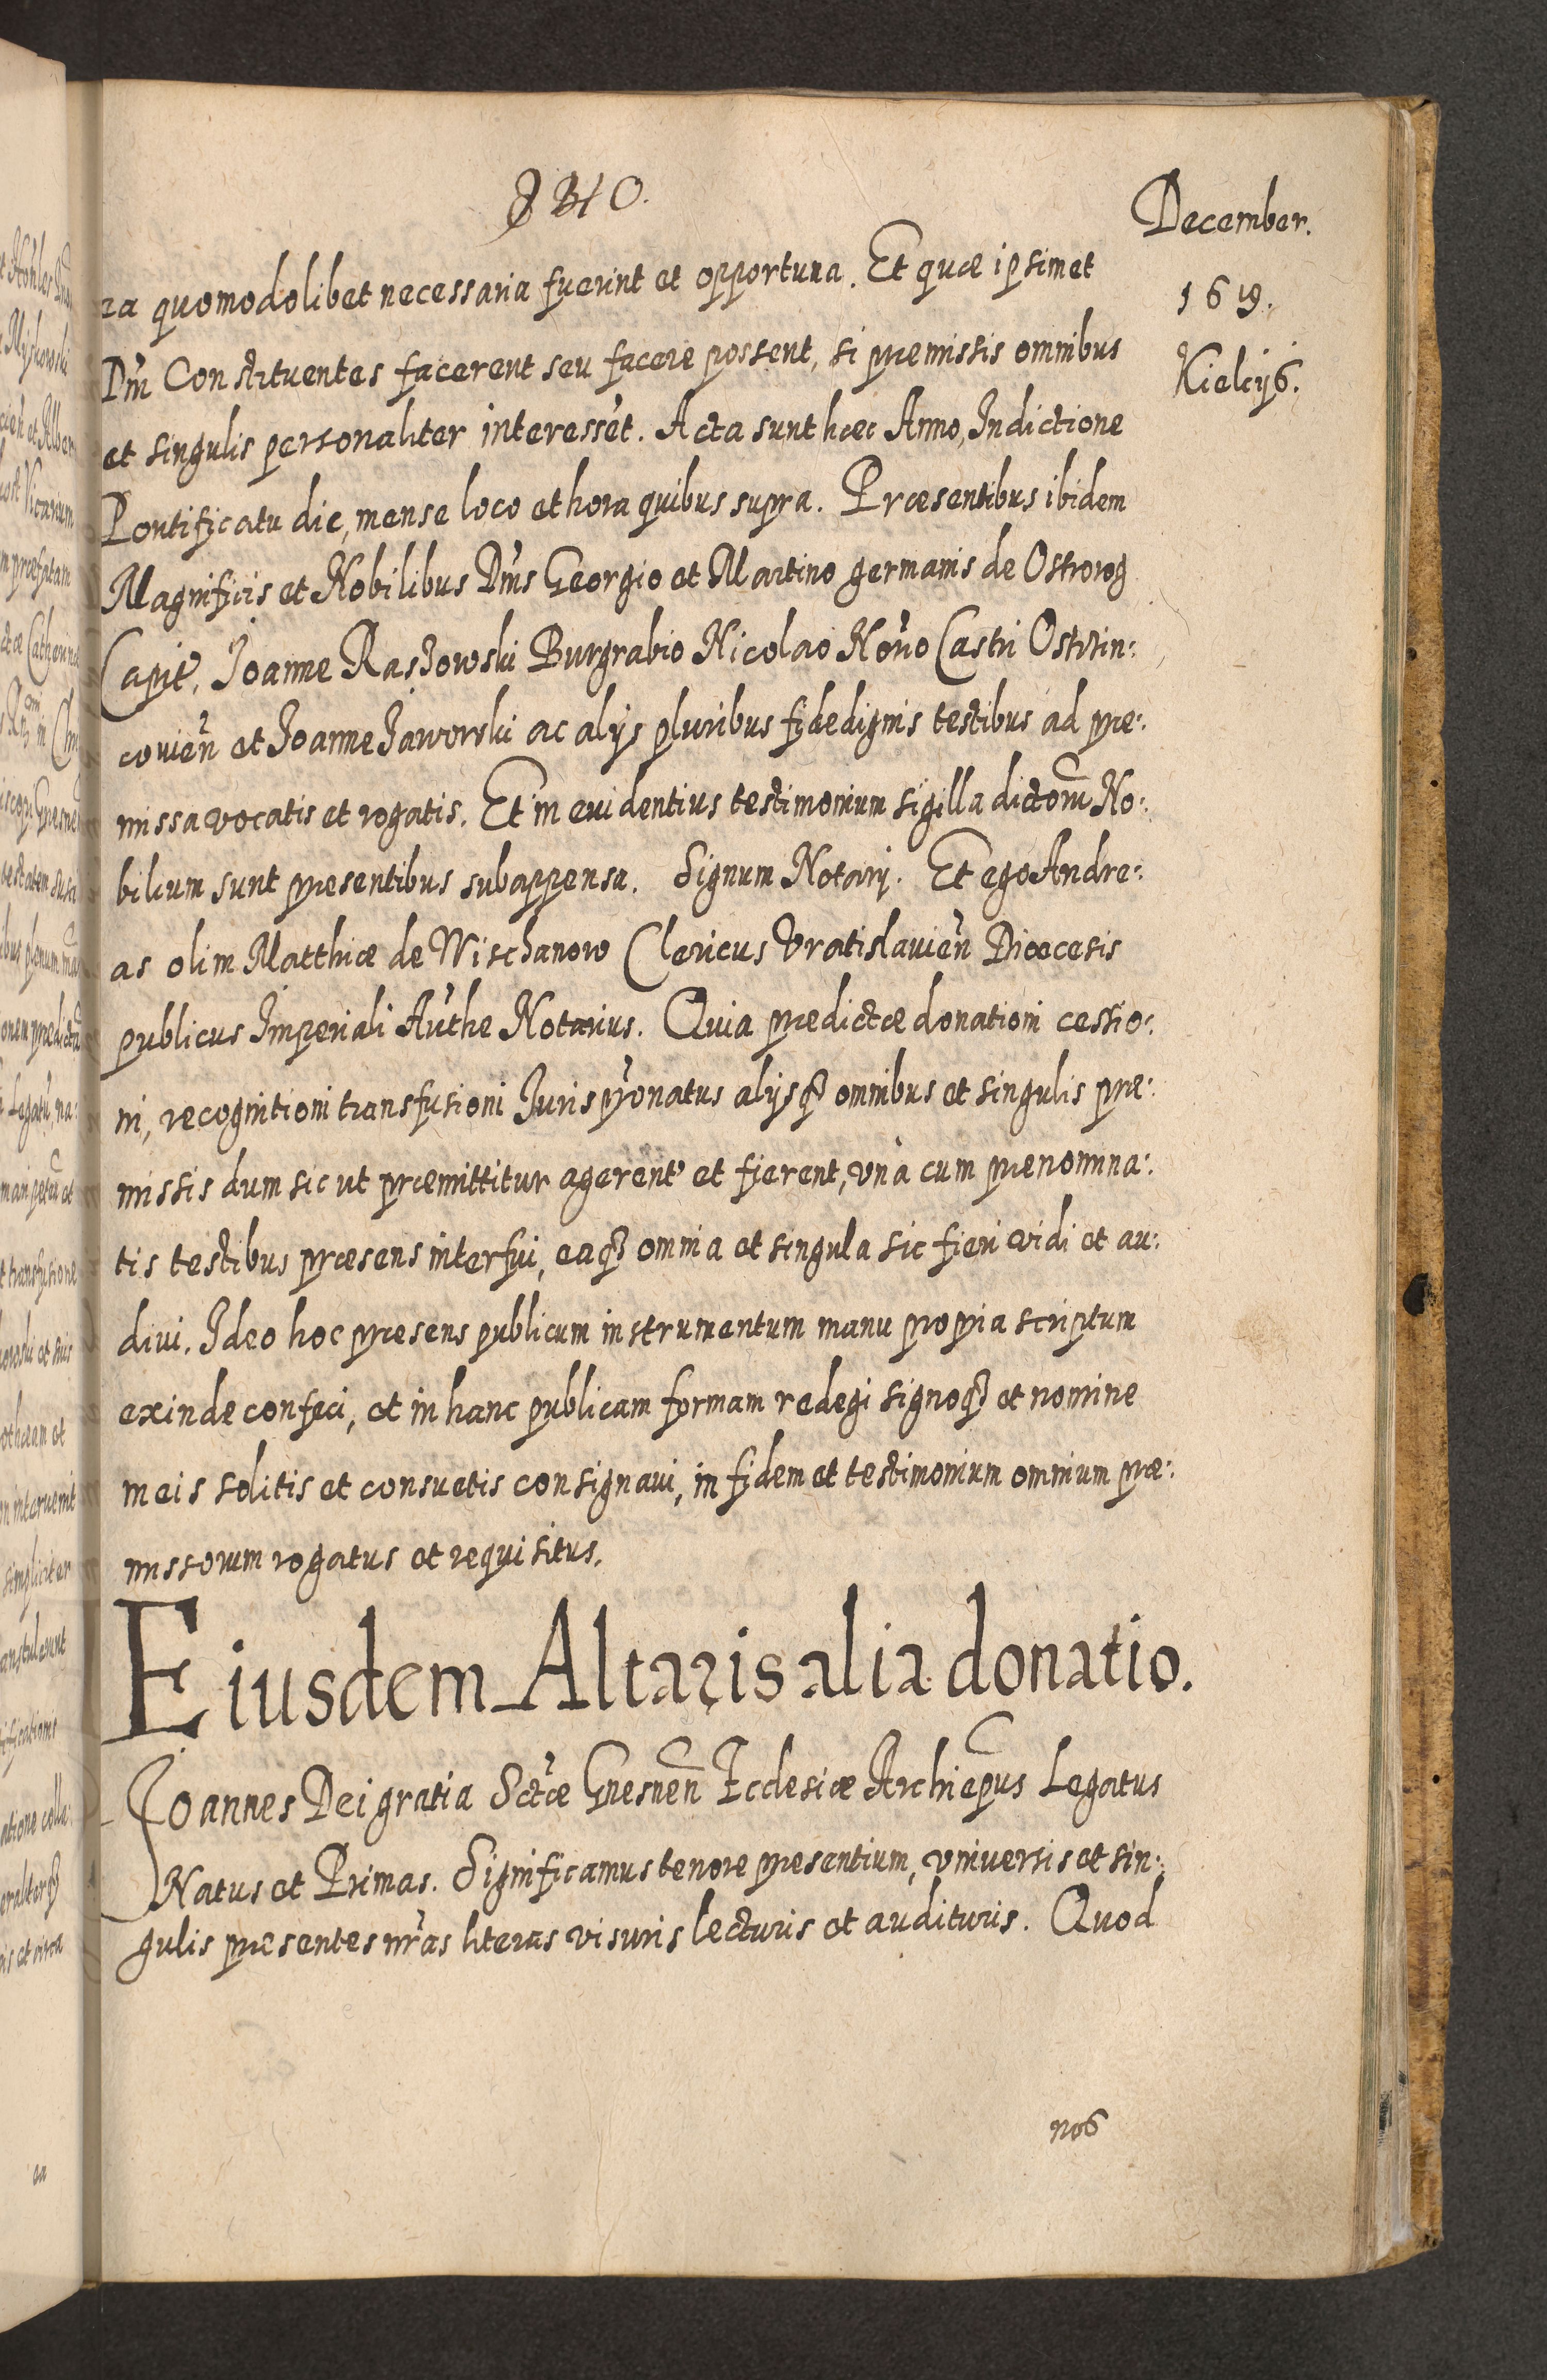 December.
1619.
Kielcijs.
ea quomodolibet necessaria fuerint et opportuna. Et quæ ipsimet
Dñi Constituentes facerent seu facere possent, si præmissis omnibus
et singulis personaliter interessēt. Acta sunt hæc Anno, Indictione
Pontificatu die, mense loco et hora quibus supra. Præsentibus ibidem
Magnificis et Nobilibus Dñis Georgio et Martino germanis de Ostrorog
Capit, Joanne Raszowski Burgrabio Nicolao Novo Castri Ostrin:
covien̄ et Joanne Jaworski ac alijs pluribus fidedignis testibus ad præ:
missa vocatis et rogatis. Et in evidentius testimonium sigilla dictorū No:
bilium sunt præsentibus subappensa. Signum Notarij. Et ego Andre:
as olim Matthiæ de Wischanow Clericus Vratislavien̄ Diœcesis
publicus Imperiali Authe Notarius. Quia prædictæ donationi cessio:
ni, recognitioni transfusioni Juris pronatus alijsq3 omnibus et singulis præ:
missis dum sic ut præmittitur agerent' et fierent, unà cum prænomina:
tis testibus præsens interfui, eaq3 omnia et singula sic fieri vidi et au:
divi. Ideo hoc præsens publicum instrumentum manu propria scriptum
exinde confeci, et in hanc publicam formam redegi signoq3 et nomine
meis solitis et consuetis consignavi, in fidem et testimonium omnium præ:
missorum rogatus et requisitus.
Eiusdem Altaris alia donatio.
Joannes Dei gratia Sctæ Gnesnen̄ Ecclesiæ Archiep̄us Legatus
Natus et Primas. Significamus tenore præsentium, universis et sin:
gulis præsentes nr̄as literas visuris lecturis et audituris. Quod
nos